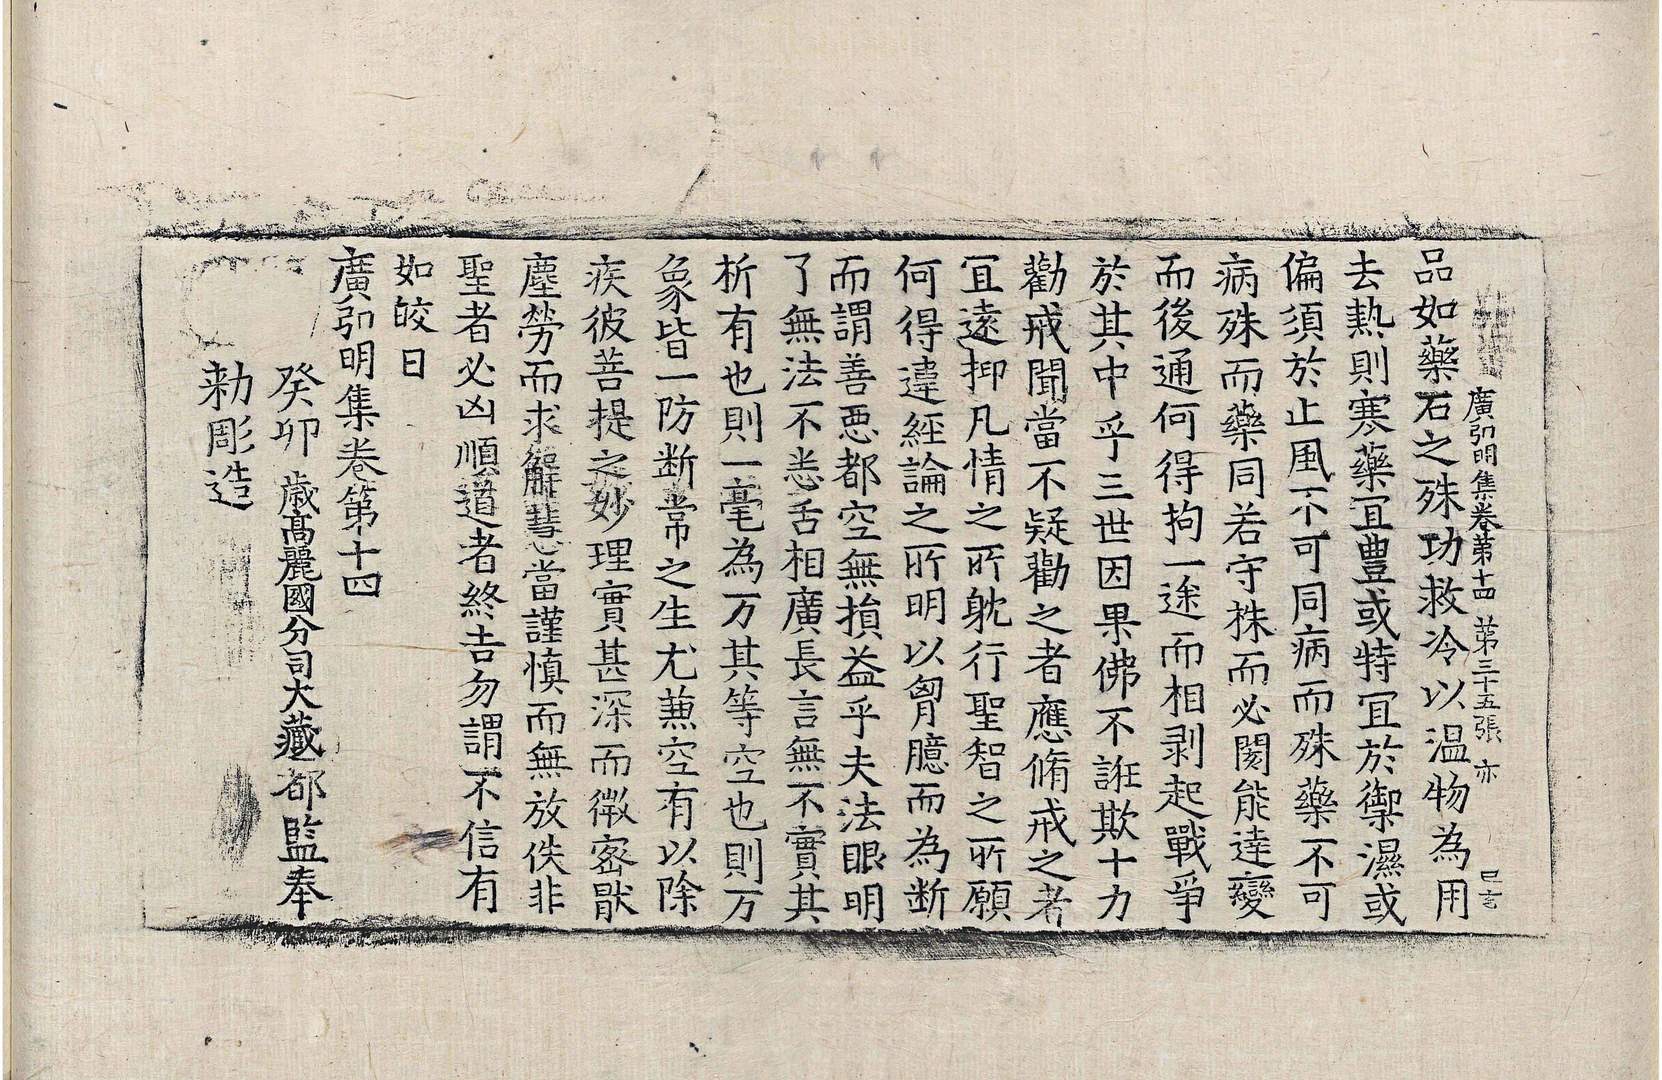 廣弘明集卷第十四 第三十五張 亦
品如藥石之殊功救冷以温物為用
去熱則寒藥冝豊或特冝於禦濕或
偏須於止風不可同病而殊藥不可
病殊而藥同若守株而必閡能達變
而後通何得拘一途而相剥起戰爭
於其中乎三世因果佛不誑欺十力
勸戒聞當不疑勸之者應脩戒之者
冝遠抑凡情之所躭行聖智之所願
何得違經論之所明以胷臆而為断
而謂善惡都空無損益乎夫法眼明
了無法不悉舌相廣長言無不實其
析有也則一毫為万其等空也則万
象皆一防断常之生尤兼空有以除
疾彼菩提之妙理實甚深而微密厭
塵勞而求解慧當謹慎而無放佚非
聖者必凶順道者終吉勿謂不信有
如皎日
廣弘明集卷第十四
癸卯歲高麗國分司大藏都監奉
勅彫造